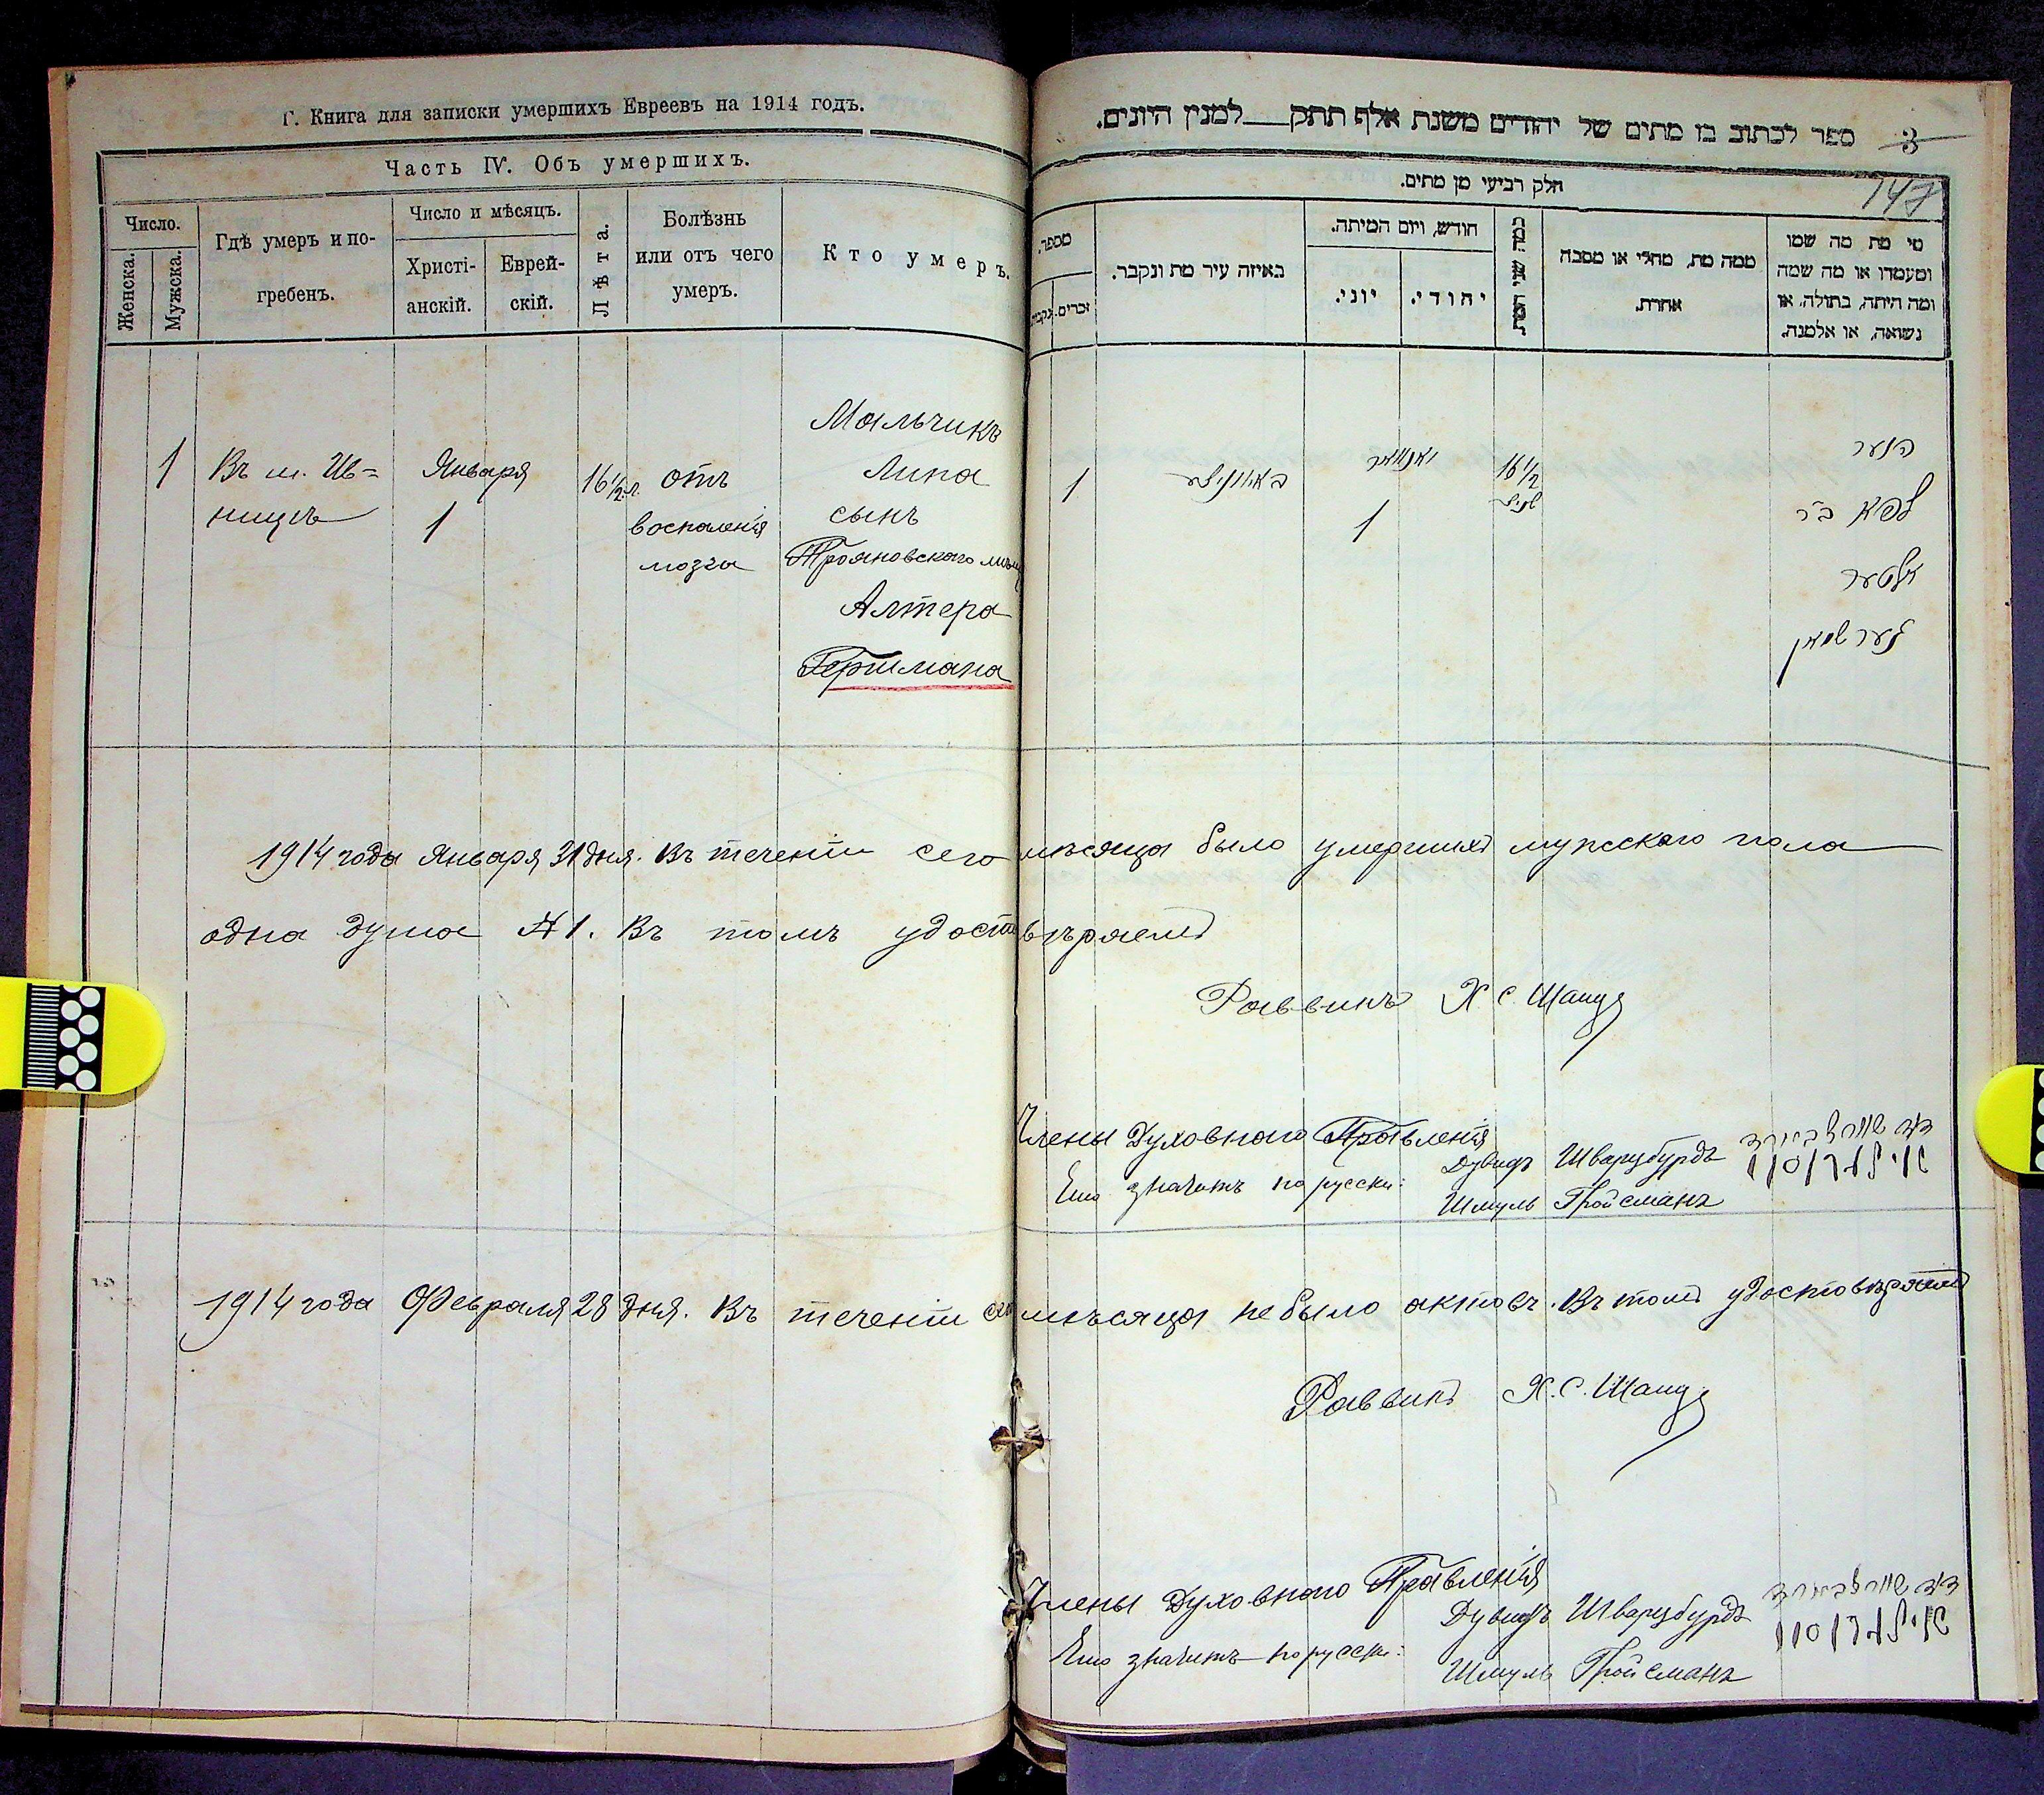 Г. Книга для записки умершихъ Евреевъ на 1914 годъ.
Часть IV. Объ умершихъ.
Число.
Женска.
Мужска.
Гдѣ умеръ и по-
гребенъ.
Число и мѣсяцъ.
Христі-
анскій.
Еврей-
скій.
Лѣта.
Болѣзнь
или отъ чего
умеръ.
Кто умеръ.
1
Въ м. Ив=
ницѣ
Января
1
16 1/2 л.
отъ
воспаленія
мозга
Мальчикъ
Липа
сынъ
Трояновского мѣщ
Алтера
Гершмана
3
ספר לכתוב בו מתים של יהודים משנת אלף תתק___למנין היונים.
147
חלק רביעי מן מתים.
מספר.
זכרים.
נקבות.
באיזה עיר מת ונקבר.
חודש, ויום המיתה.
יוני.
יהודי.
כמה שני המת.
ממה מת, מחלי או מסבה
אחרת.
מי מת מה שמו
ומעמדו או מה שמה
ומה היתה, בתולה, או
נשואה, או אלמנה.
1
באיווניצע
יאנוואר
1
16 1/2
הנער
ליפא ב״ר
אלטער
גערשמאן
1914 года Января 31 дня. Въ теченіи сего мѣсяца было умершихъ мужского пола
одна душа № 1. Въ томъ удостовѣряемъ
Раввинъ Х С. Шанд
Члены Духовного Правленія
Ето значитъ по русски:
Дувидъ Шварцбурдъ
Шмуль Гройсманъ
דוד שווארצבוירד
1914 года Февраля 28 дня. Въ теченіи сего мѣсяца не было актовъ. Въ томъ удостовѣряемъ
Раввинъ Х. С. Шанд
Члены Духовного Правленія
Ето значитъ по русски:
Дувидъ Шварцбурдъ
Шмуль Гройсманъ
דוד שווארצבוירד